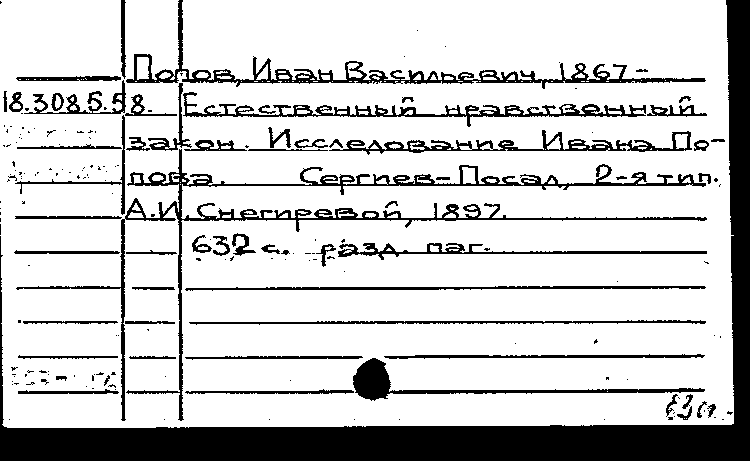 Попов, Иван Васильевич, 1867-
18.308.5.58. Естественный нравственный
закон. Исследование Ивана По-
пова. Сергиев-Посад, 2-я тип.
А.И. Снегиревой, 1897.
632 с. разд. паг.